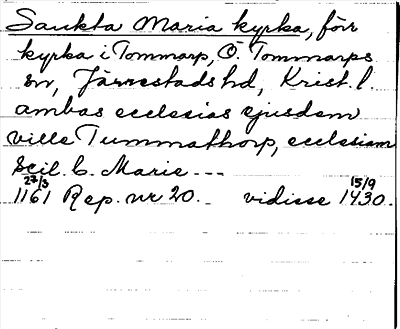 Sankta Maria kyrka, förr
kyrka i Tommarp, Ö. Tommarps
sn, Järrestads hd, Krist. l.
ambas ecclesias ejusdem
ville Tummathorp, ecclesiam
scil. b. Marie ---
27/3 1161 Rep. nr 20. vidisse 15/9 1430.